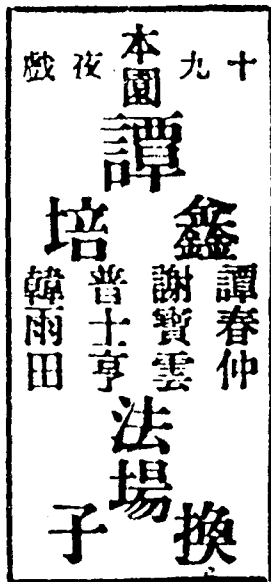 十九夜戲
本園
譚
鑫培
譚春仲
謝寶雲
普士亨
韓雨田
法場
換子